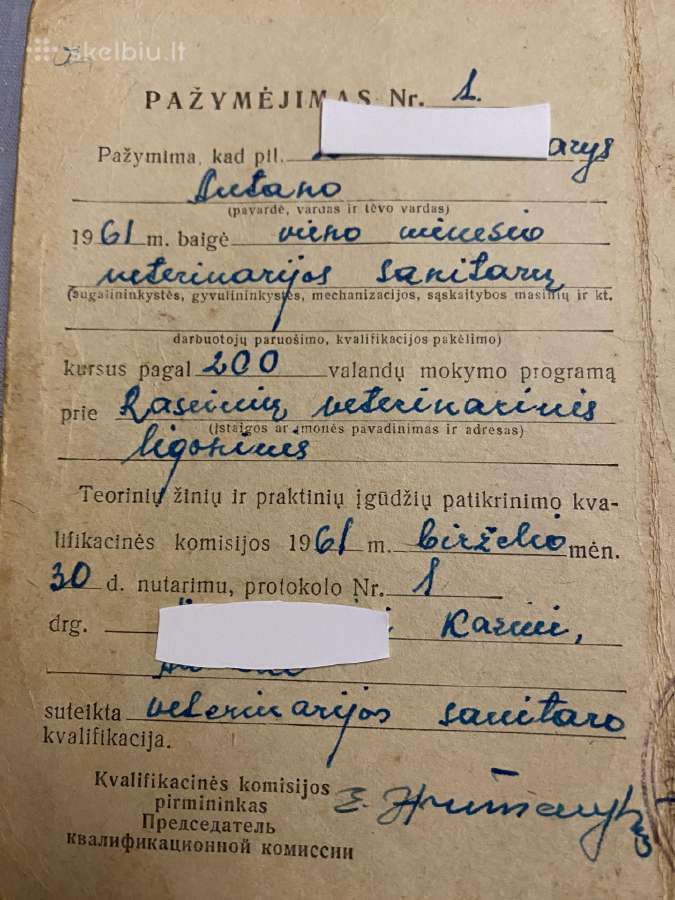 skelbiu.lt
PAŽYMĖJIMAS Nr. 1.
Pažymima, kad pil. arys
Antano
(pavardė, vardas ir tėvo vardas)
1961 m. baigė vieno mėnesio
veterinarijos sanitarų
(augalininkystės, gyvulininkystės, mechanizacijos, sąskaitybos masinių ir kt.
darbuotojų paruošimo, kvalifikacijos pakėlimo)
kursus pagal 200 valandų mokymo programą
prie Raseinių veterinarinės
(įstaigos ar įmonės pavadinimas ir adresas)
ligoninės
Teorinių žinių ir praktinių įgūdžių patikrinimo kva-
lifikacinės komisijos 1961 m. birželio mėn.
30 d. nutarimu, protokolo Nr. 1
drg. i Kazini,
suteikta veterinarijos sanitaro
kvalifikacija.
Kvalifikacinės komisijos
pirmininkas
Председатель
квалификационной комиссии